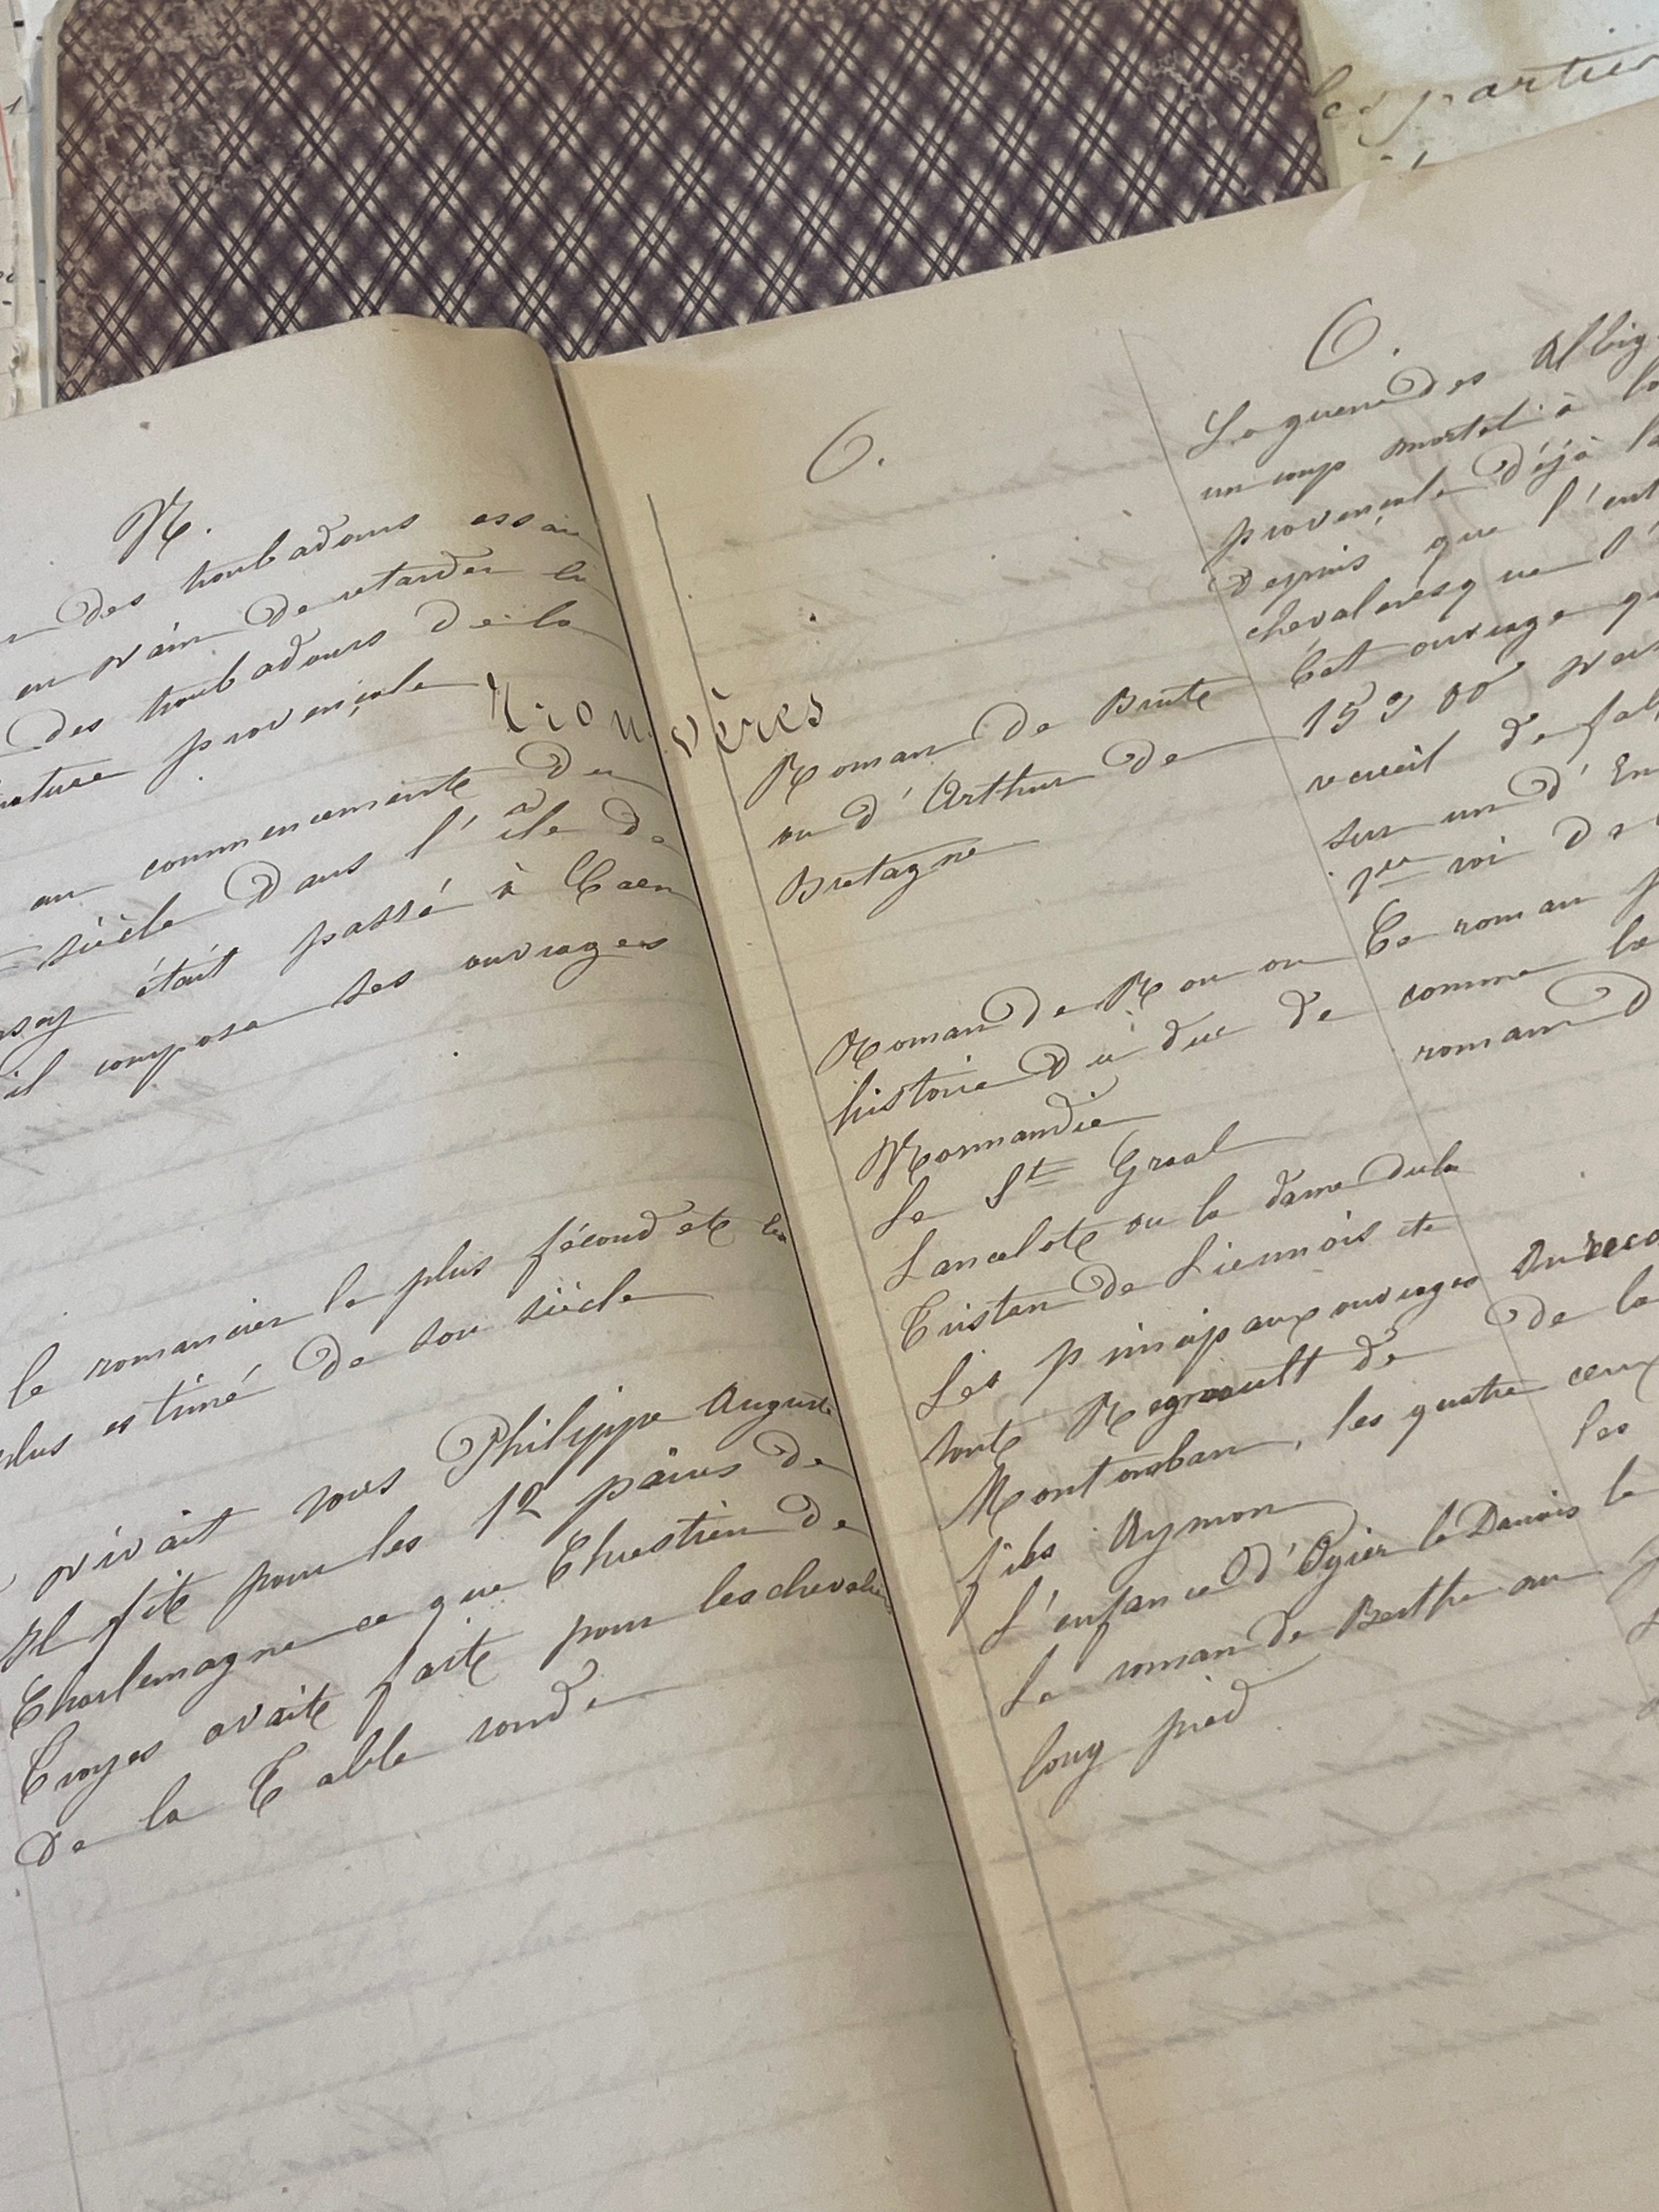 les partie
N.
des troubadours essai
en vain de retarder la
des troubadours de la
provençale
Trouvères
au commencement du
siècle dans l'île de
était passé à Caen
il composa ses ouvrages
le romancier le plus fécond et le
plus estimé de son siècle
vivait sous Philippe Auguste
Il fit pour les 12 pairs de
Charlemagne ce que Chrestien de
Troyes avait fait pour les chevali
de la Table ronde
O.
Roman de Brute
ou d'Arthur de
Bretagne
Roman de Rou ou
histoire du duc de
Normandie
Le St Graal
Lancelot ou la dame du la
Tristan de Lieunois etc
Les principaux ouvrages
sont Regnault de
Montauban, les quatre
fils Aymon
L'enfance d'Ogier le Danois
Le roman de Berthe au
long pied
O.
La guerre des Albig
un coup mortel à la
provençale déjà la
depuis que l'ent
chevaleresque l'
Cet ouvrage
15300 vers
recueil de fab
sur un d'En
1er roi de
Ce roman
comme le
roman d
On reco
de la
ceux
les
le